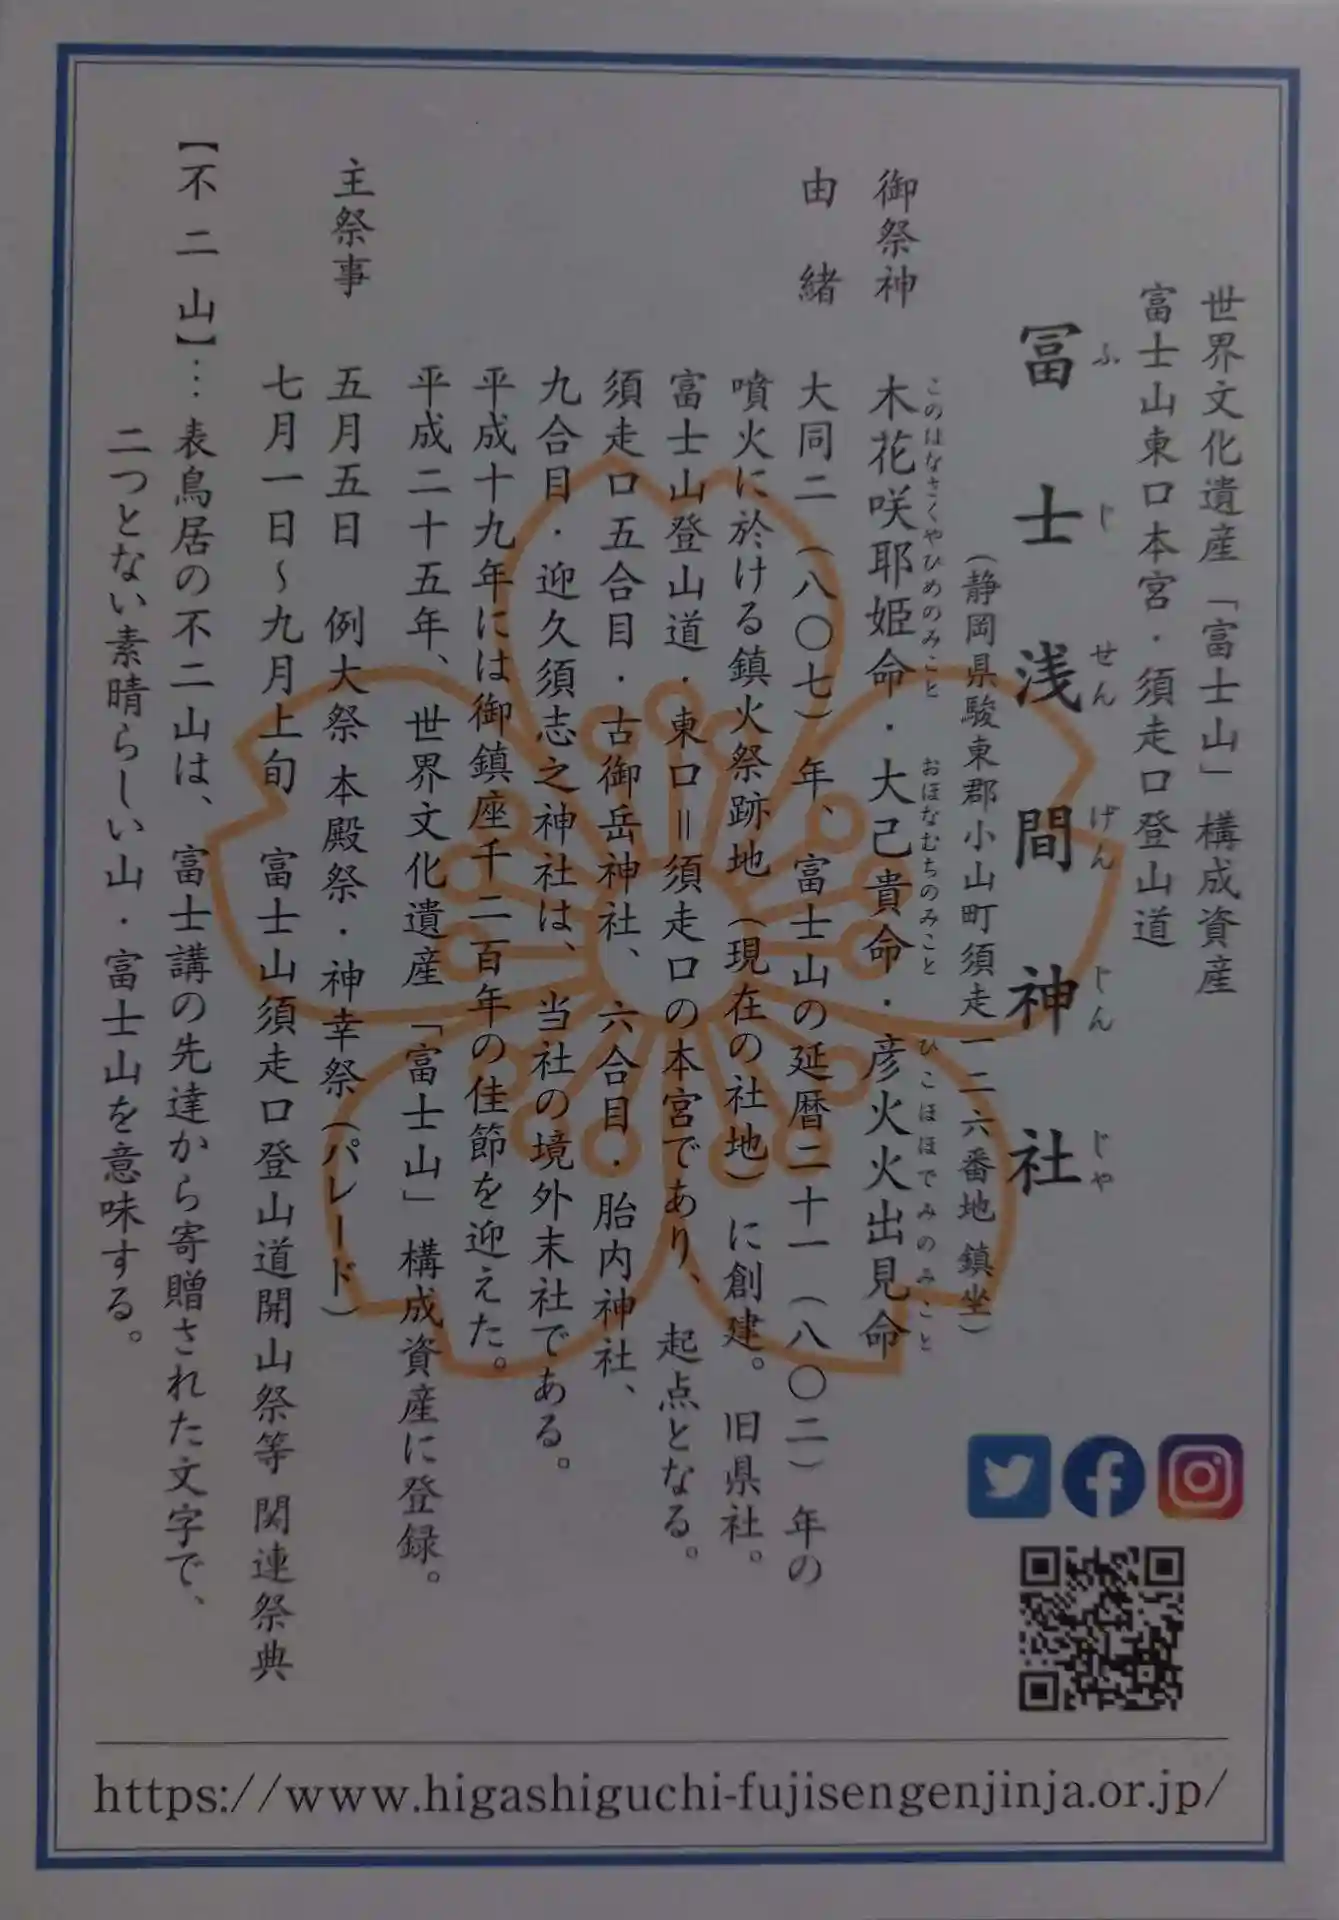 世界文化遺産「富士山」構成資産
富士山東口本宮・須走口登山道
冨士浅間神社
ふじせんげんじんじや
（静岡県駿東郡小山町須走一二六番地 鎮坐）
御祭神 木花咲耶姫命・大己貴命・彦火火出見命
このはなさくやひめのみこと おほなむちのみこと ひこほほでみのみこと
由緒 大同二（八〇七）年、富士山の延暦二十一（八〇二）年の
噴火に於ける鎮火祭跡地（現在の社地）に創建。旧県社。
富士山登山道・東口＝須走口の本宮であり、起点となる。
須走口五合目・古御岳神社、六合目・胎内神社、
九合目・迎久須志之神社は、当社の境外末社である。
平成十九年には御鎮座千二百年の佳節を迎えた。
平成二十五年、世界文化遺産「富士山」構成資産に登録。
主祭事 五月五日 例大祭 本殿祭・神幸祭（パレード）
七月一日～九月上旬 富士山須走口登山道開山祭等 関連祭典
【不二山】…表鳥居の不二山は、富士講の先達から寄贈された文字で、
二つとない素晴らしい山・富士山を意味する。
https://www.higashiguchi-fujisengenjinja.or.jp/